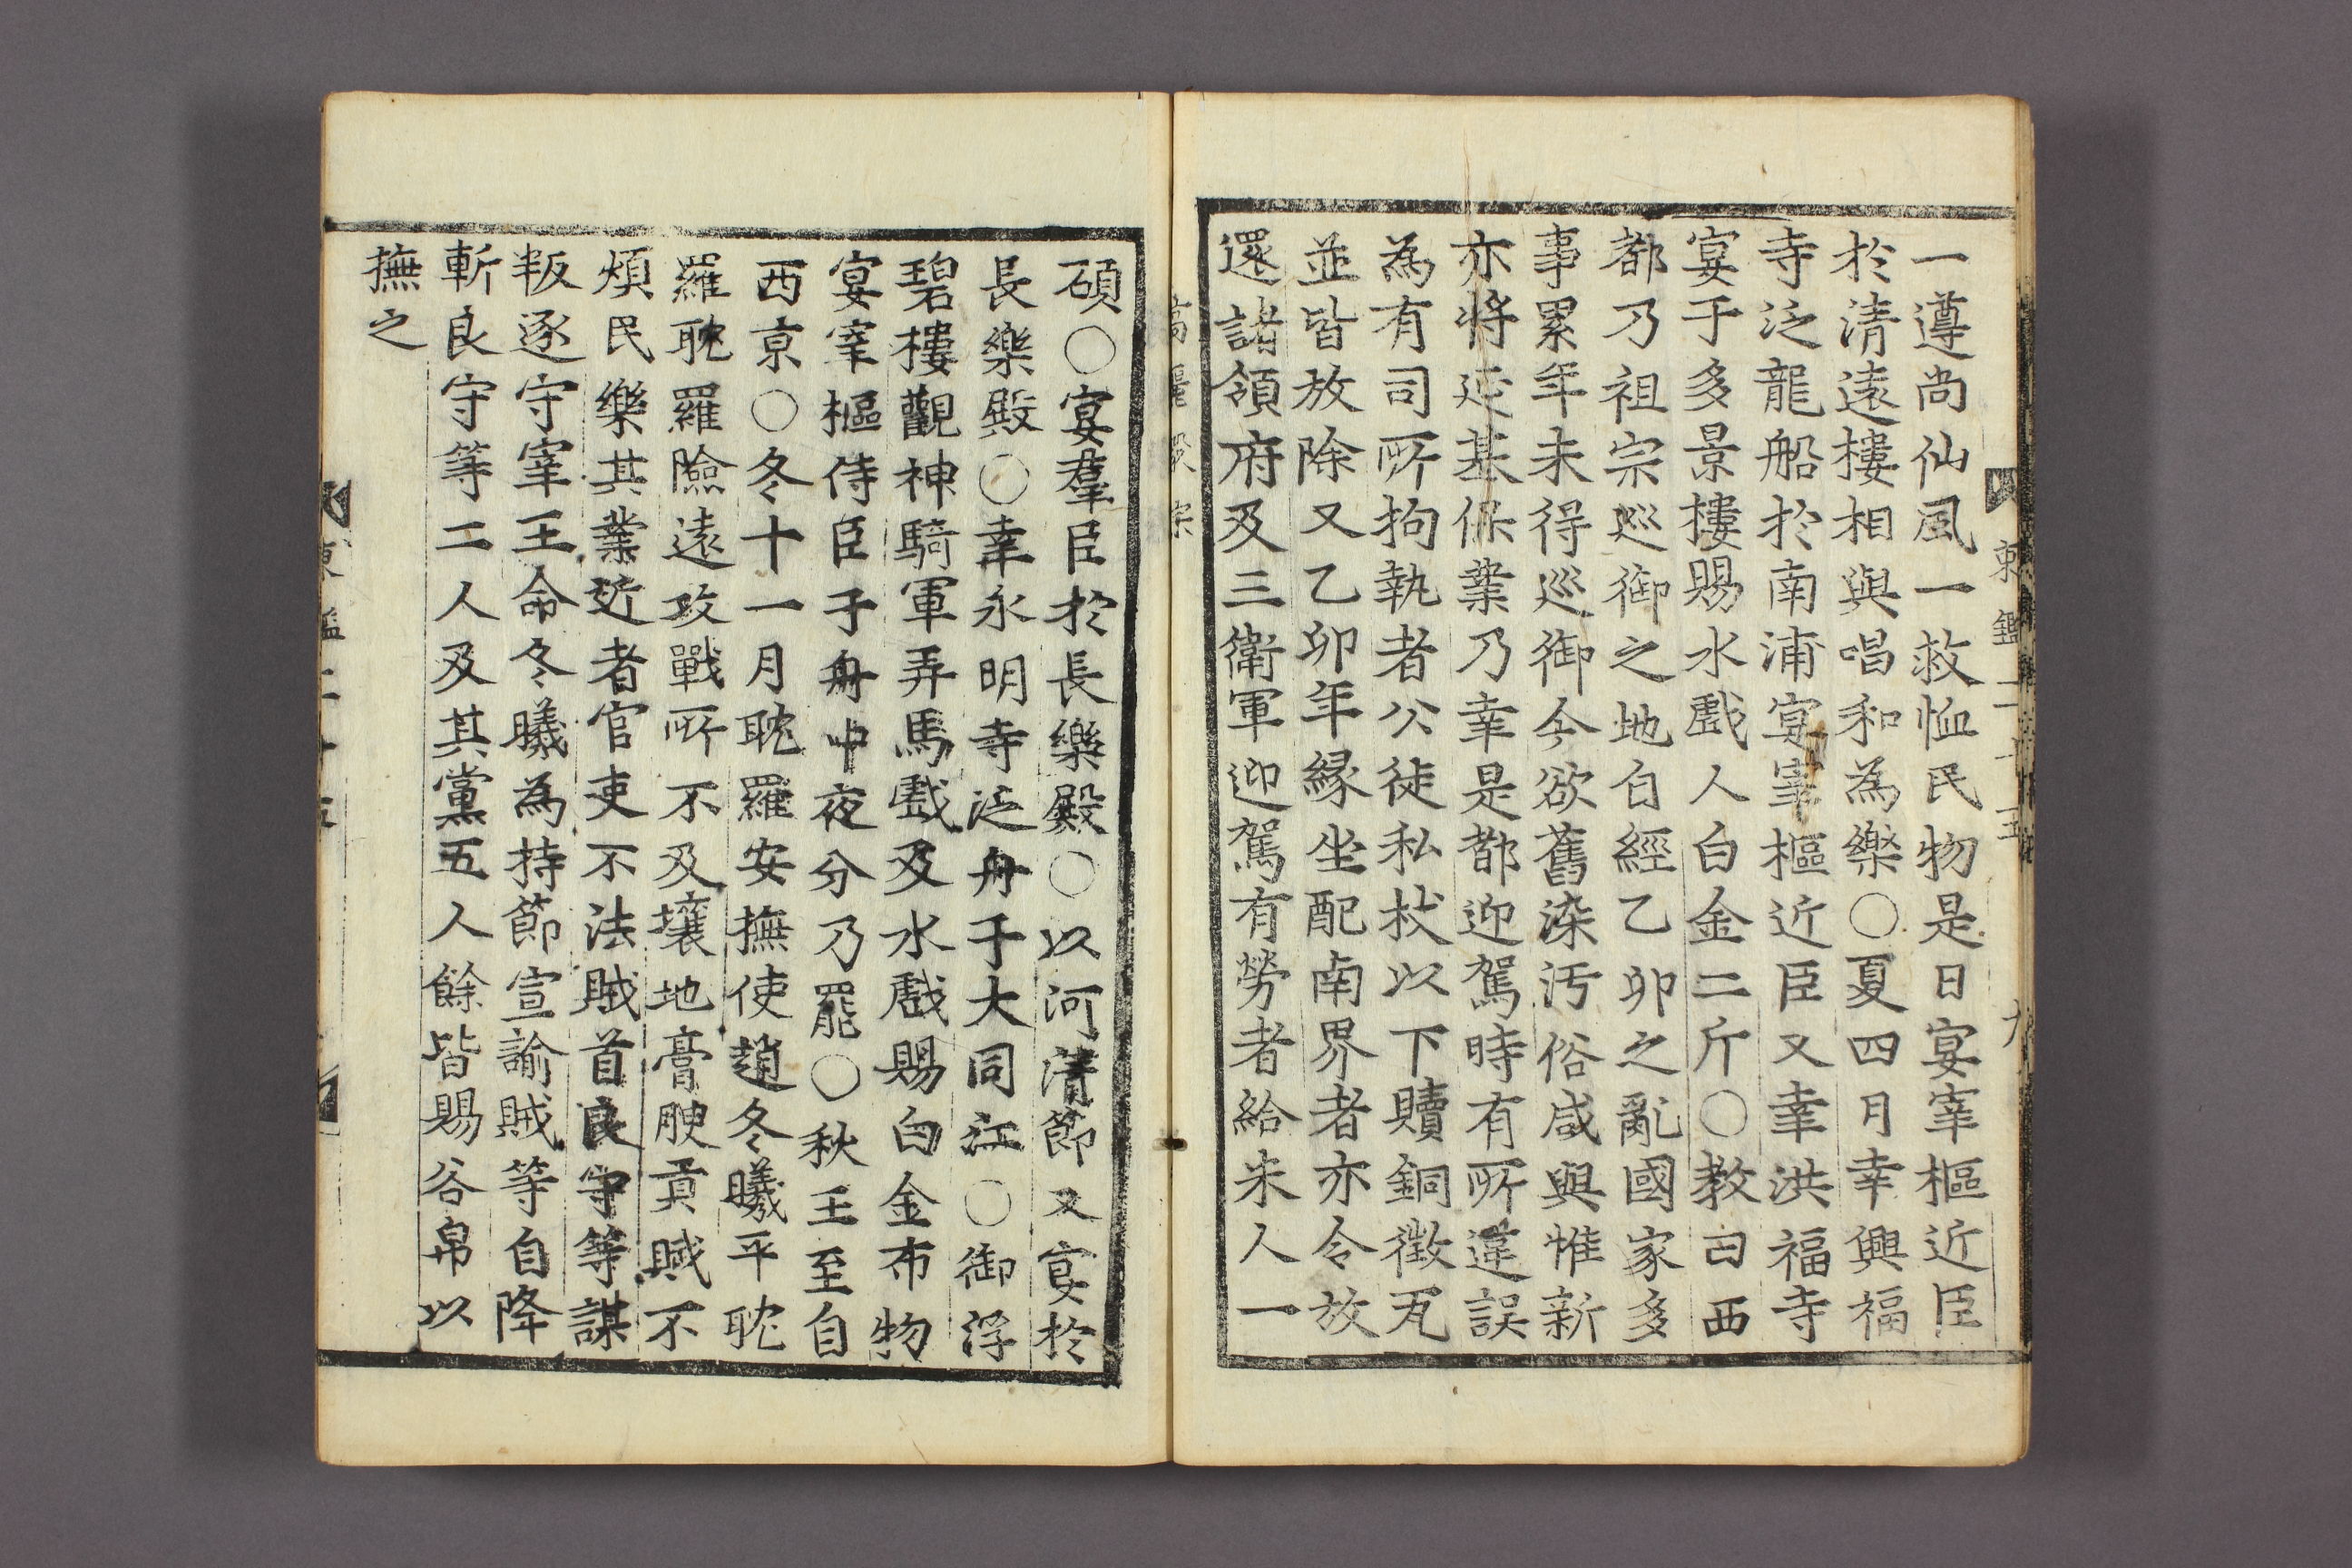 一遵尚仙風一救恤民物是日宴宰樞近臣
於淸遠樓相與唱和為樂○夏四月幸興福
寺泛龍船於南浦宴宰樞近臣又幸洪福寺
宴于多景樓賜水戲人白金二斤○教曰西
都乃祖宗巡御之地自經乙卯之亂國家多
事累年未得巡御今欲舊染汚俗咸與惟新
亦將延基保業乃幸是都迎駕時有所違誤
為有司所拘執者公徒私杖以下贖銅徵瓦
並皆放除又乙卯年緣坐配南界者亦令放
還諸領府及三衛軍迎駕有勞者給米人一
碩○宴羣臣於長樂殿○以河淸節又宴於
長樂殿○幸永明寺泛舟于大同江○御浮
碧樓觀神騎軍弄馬戲及水戲賜白金布物
宴宰樞侍臣于舟中夜分乃罷○秋王至自
西京○冬十一月耽羅安撫使趙冬曦平耽
羅耽羅險遠攻戰所不及壤地膏腴貢賦不
煩民樂其業近者官吏不法賊首良守等謀
叛逐守宰王命冬曦為持節宣諭賊等自降
斬良守等二人及其黨五人餘皆賜谷帛以
撫之